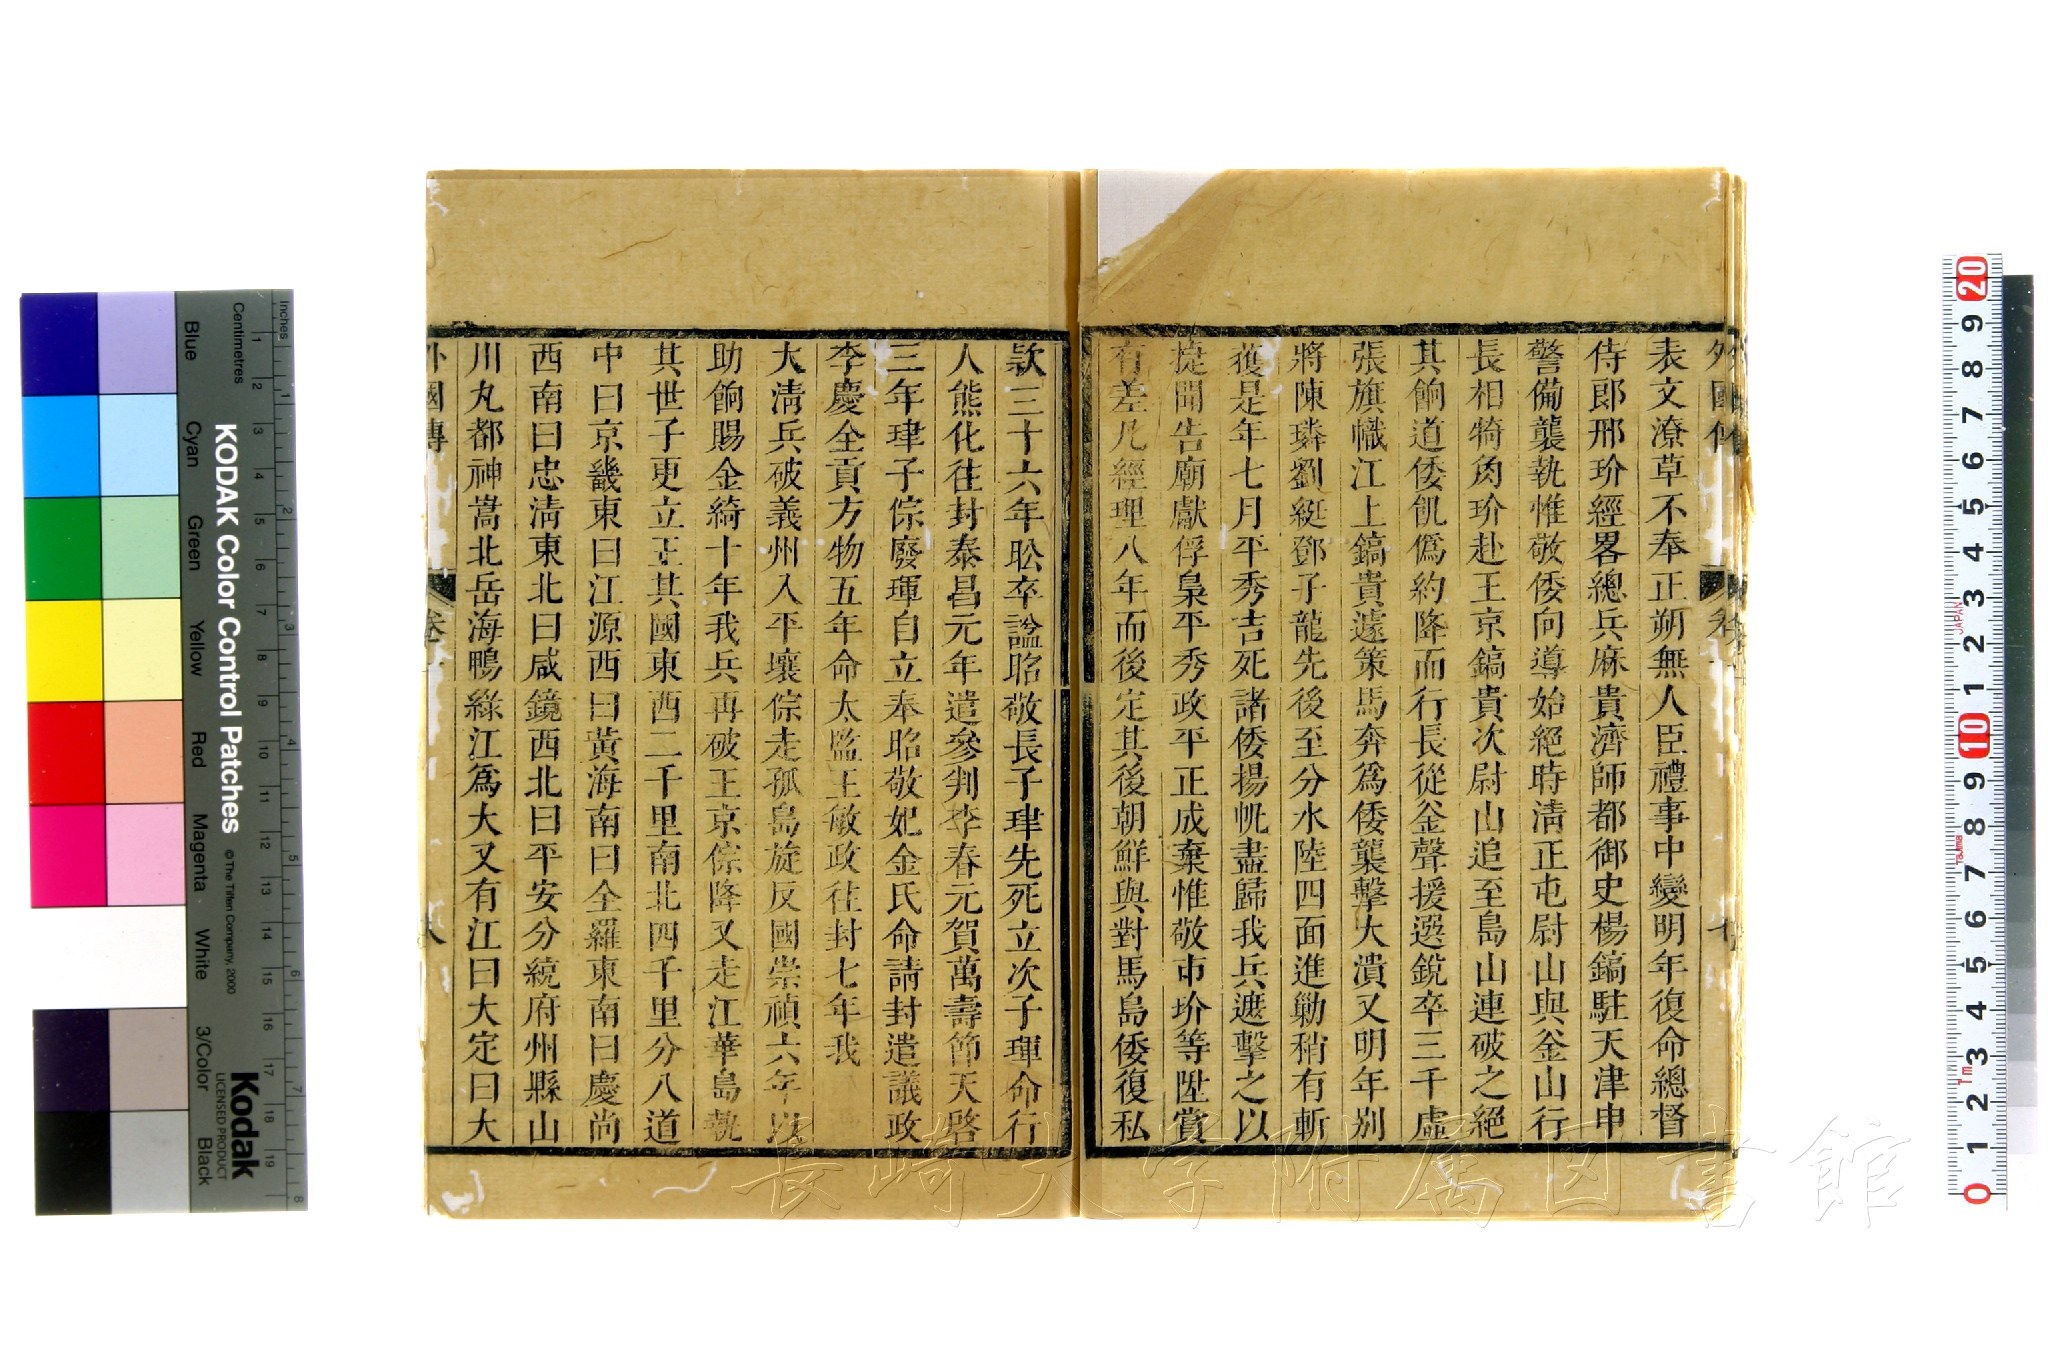 外國傳
七
表文潦草不奉正朔無人臣禮事中變明年復命總督
侍郎邢玠經畧總兵麻貴濟師都御史楊鎬駐天津申
警備襲執惟敬倭向導始絕時淸正屯尉山與釜山行
長相犄角玠赴王京鎬貴次尉山追至島山連破之絕
其餉道倭飢僞約降而行長從釜聲援選銳卒三千虛
張旗幟江上鎬貴遽策馬奔爲倭襲擊大潰又明年别
將陳璘劉綎鄧子龍先後至分水陸四面進勦稍有斬
獲是年七月平秀吉死諸倭揚帆盡歸我兵遮擊之以
捷聞告廟獻俘梟平秀政平正成棄惟敬市玠等陞賞
有差凡經理八年而後定其後朝鮮與對馬島倭復私
款三十六年昖卒諡昭敬長子珒先死立次子琿命行
人熊化往封泰昌元年遣參判李春元賀萬壽節天啓
三年琿子倧廢琿自立奉昭敬妃金氏命請封遣議政
李慶全貢方物五年命太監王敏政往封七年我
大淸兵破義州入平壤倧走孤島旋反國崇禎六年以
助餉賜金綺十年我兵再破王京倧降又走江華島執
其世子更立王其國東西二千里南北四千里分八道
中曰京畿東曰江源西曰黃海南曰全羅東南曰慶尚
西南曰忠淸東北曰咸鏡西北曰平安分統府州縣山
川丸都神嵩北岳海鴨綠江爲大又有江曰大定曰大
外國傳
卷
八
長崎大学附属図書館
KODAK Color Control Patches
© The Tiffen Company, 2000
Kodak
LICENSED PRODUCT
Inches
Centimetres
Blue
Cyan
Green
Yellow
Red
Magenta
White
3/Color
Black
1 2 3 4 5 6 7 8 9 10 11 12 13 14 15 16 17 18 19
1 2 3 4 5 6 7 8
20 9 8 7 6 5 4 3 2 1 10 9 8 7 6 5 4 3 2 1 0
JAPAN
Tajima
1m